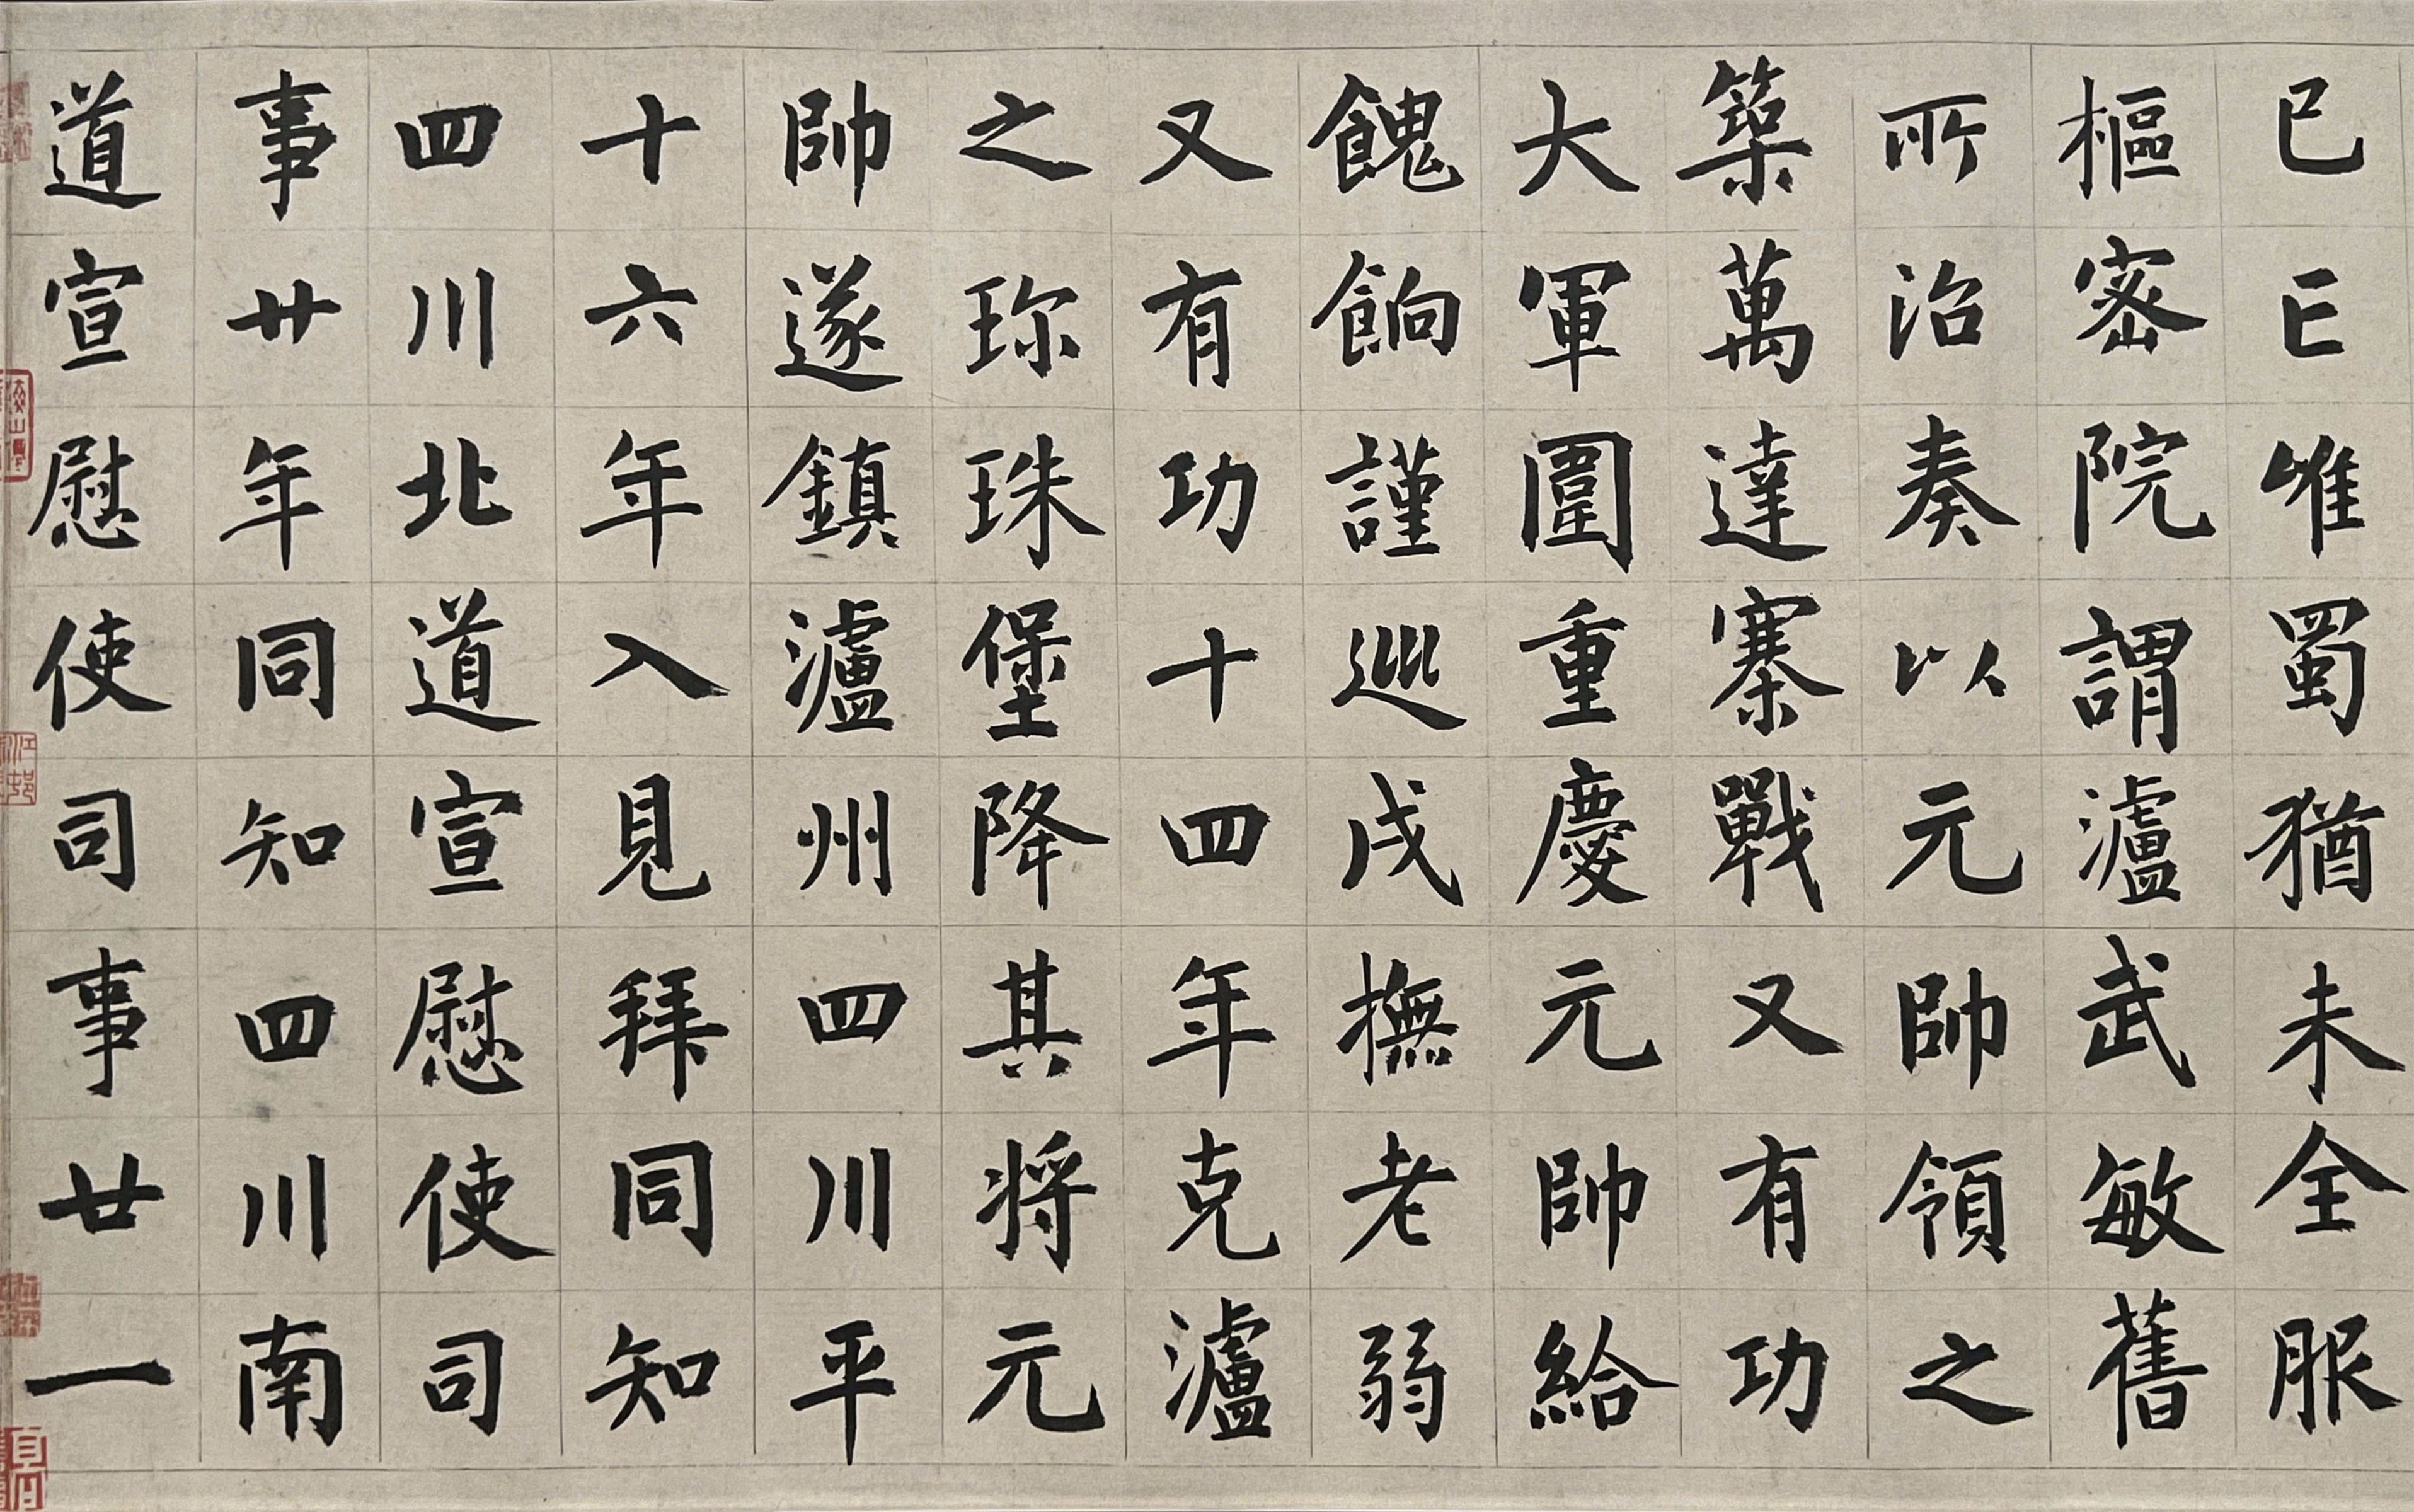 已亡唯蜀猶未全服
樞密院謂瀘武敏舊
所治奏以元帥領之
築萬達寨戰又有功
大軍圍重慶元帥給
餽餉謹巡戍撫老弱
又有功十四年克瀘
之珎珠堡降其将元
帥遂鎮瀘州四川平
十六年入見拜同知
四川北道宣慰使司
事廿年同知四川南
道宣慰使司事廿一